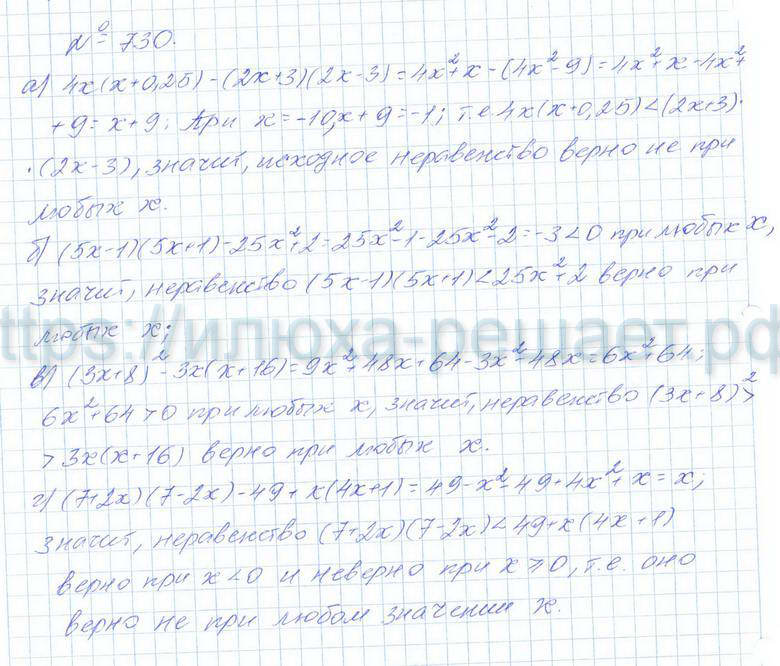 № 730.
а) 4x(x+0,25)-(2x+3)(2x-3)=4x²+x-(4x²-9)=4x²+x-4x²+
+9=x+9; При x=-10, x+9=-1; т.е. 4x(x+0,25)<(2x+3)·
·(2x-3), значит, исходное неравенство верно не при
любых x.
б) (5x-1)(5x+1)-25x²+2=25x²-1-25x²-2=-3<0 при любых x,
значит, неравенство (5x-1)(5x+1)<25x²+2 верно при
любых x;
https://илюха-решает.рф
в) (3x+8)²-3x(x+16)=9x²+48x+64-3x²-48x=6x²+64;
6x²+64>0 при любых x, значит, неравенство (3x+8)²>
>3x(x+16) верно при любых x.
г) (7+2x)(7-2x)-49+x(4x+1)=49-x²-49+4x²+x=x;
значит, неравенство (7+2x)(7-2x)<49+x(4x+1)
верно при x<0 и неверно при x⩾0, т.е. оно
верно не при любом значении x.